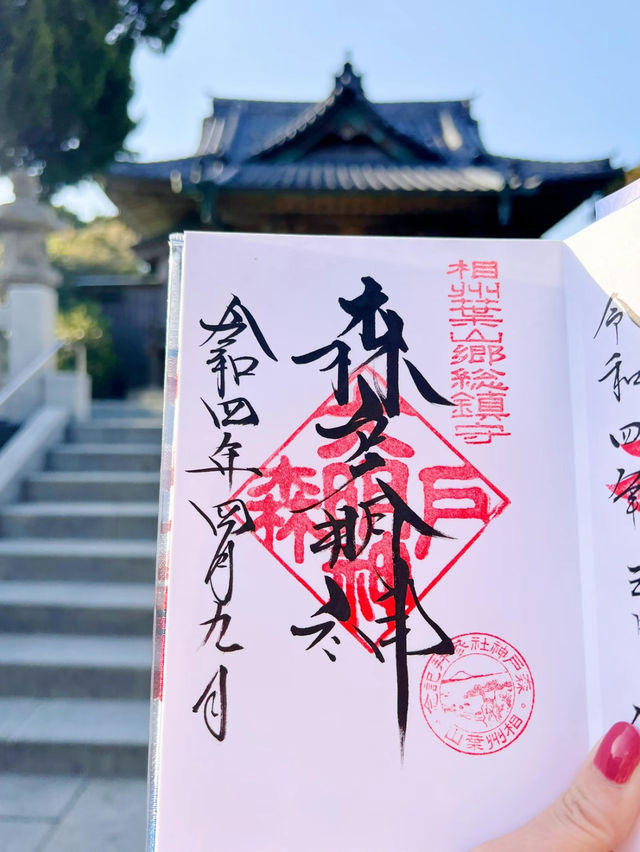 相州葉山郷総鎮守
森戸大明神
令和四年四月九日
森戸大明神
森戸神社参拝記念。相州葉山
令和四年